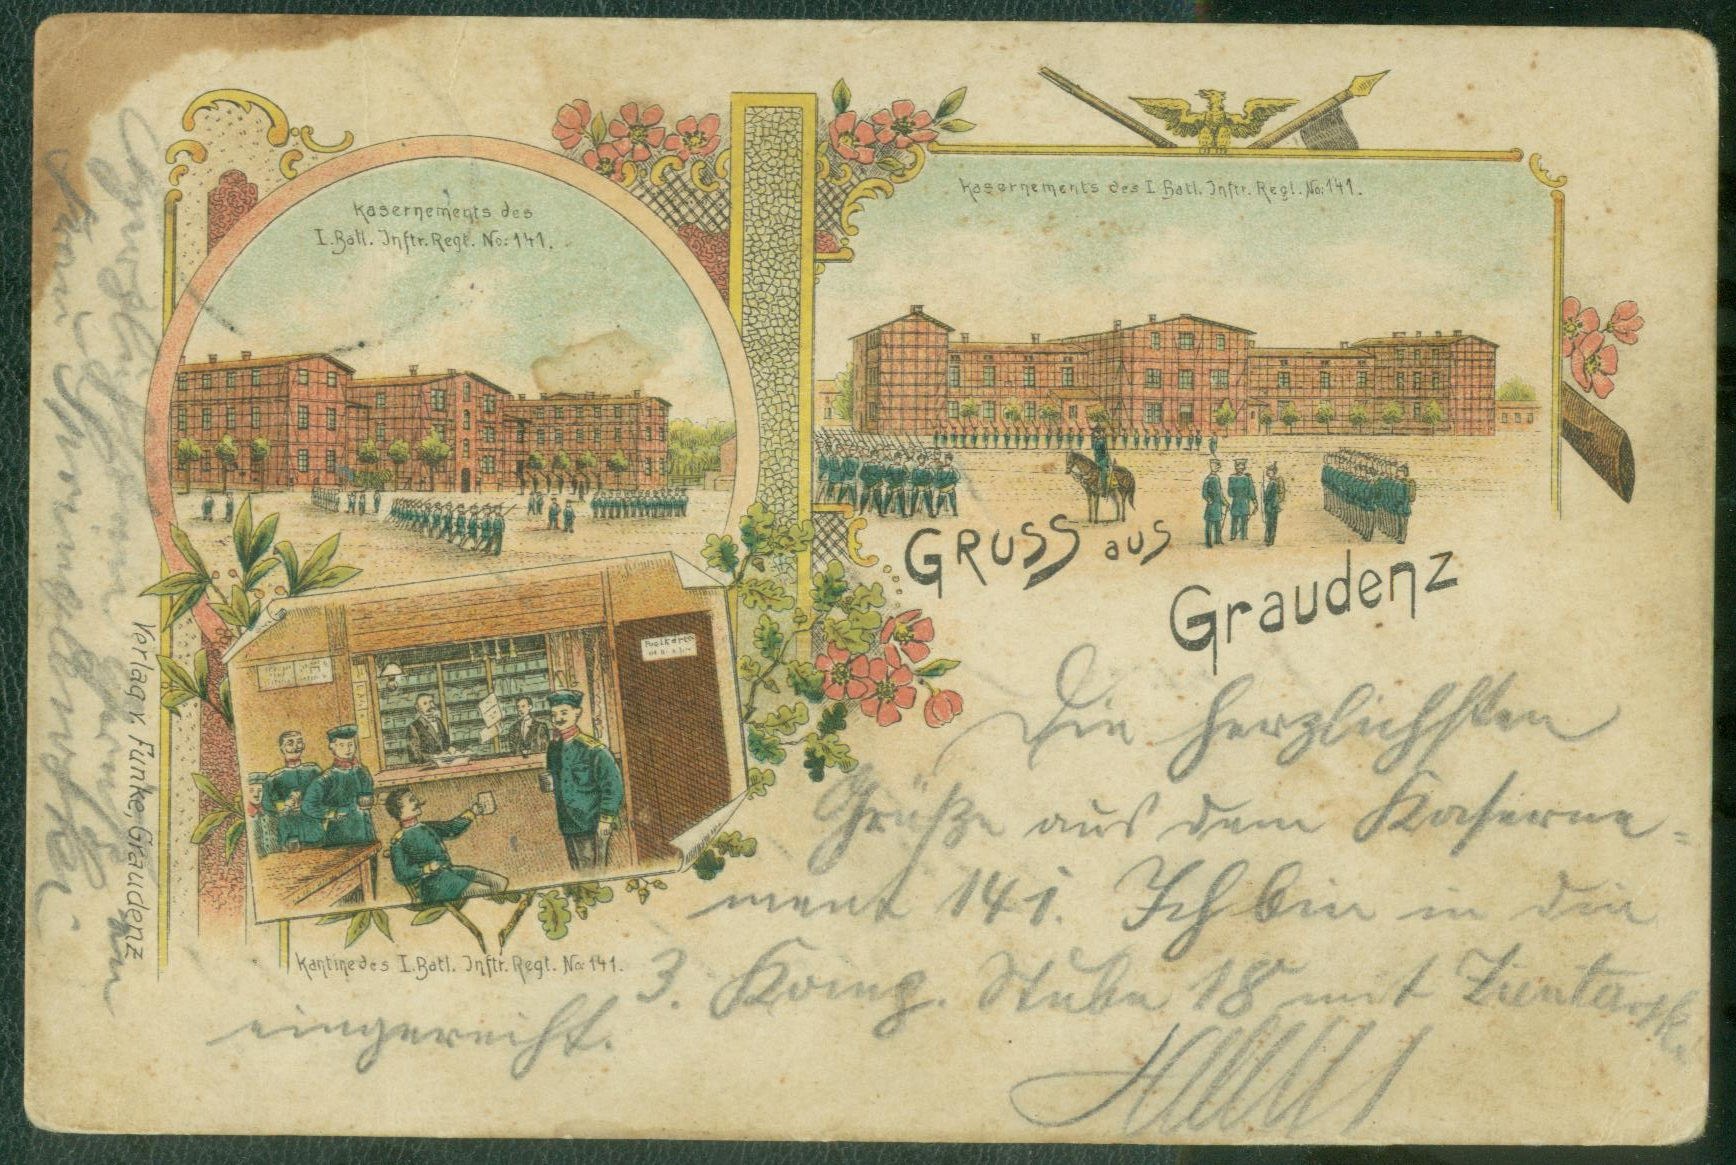 Kasernements des
I. Batl. Inftr. Regt. No: 141.
Kasernements des I. Batl. Inftr. Regt. No: 141.
GRUSS aus
Graudenz
Postkarten
Kantine des I. Batl. Inftr. Regt. No: 141.
Verlag v. Funke, Graudenz
Die herzlichsten
Grüße aus dem Kaserne-
ment 141. Ich bin in die
3. Komp. Stube 18 mit Zientarski
eingereiht.